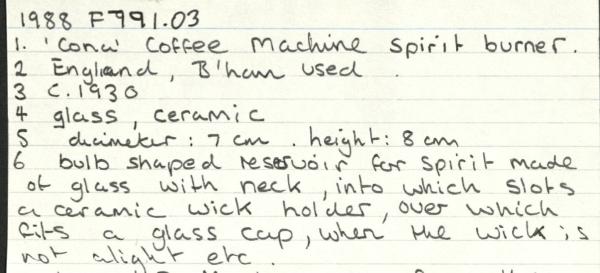 1988 F791.03
1. 'Cona' Coffee Machine spirit burner.
2 England, B'ham used .
3 C.1930
4 glass, ceramic
5 diameter : 7 cm . height : 8 cm
6 bulb shaped reservoir for spirit made
of glass with neck, into which slots
a ceramic wick holder, over which
fits a glass cap, when the wick is
not alight etc.